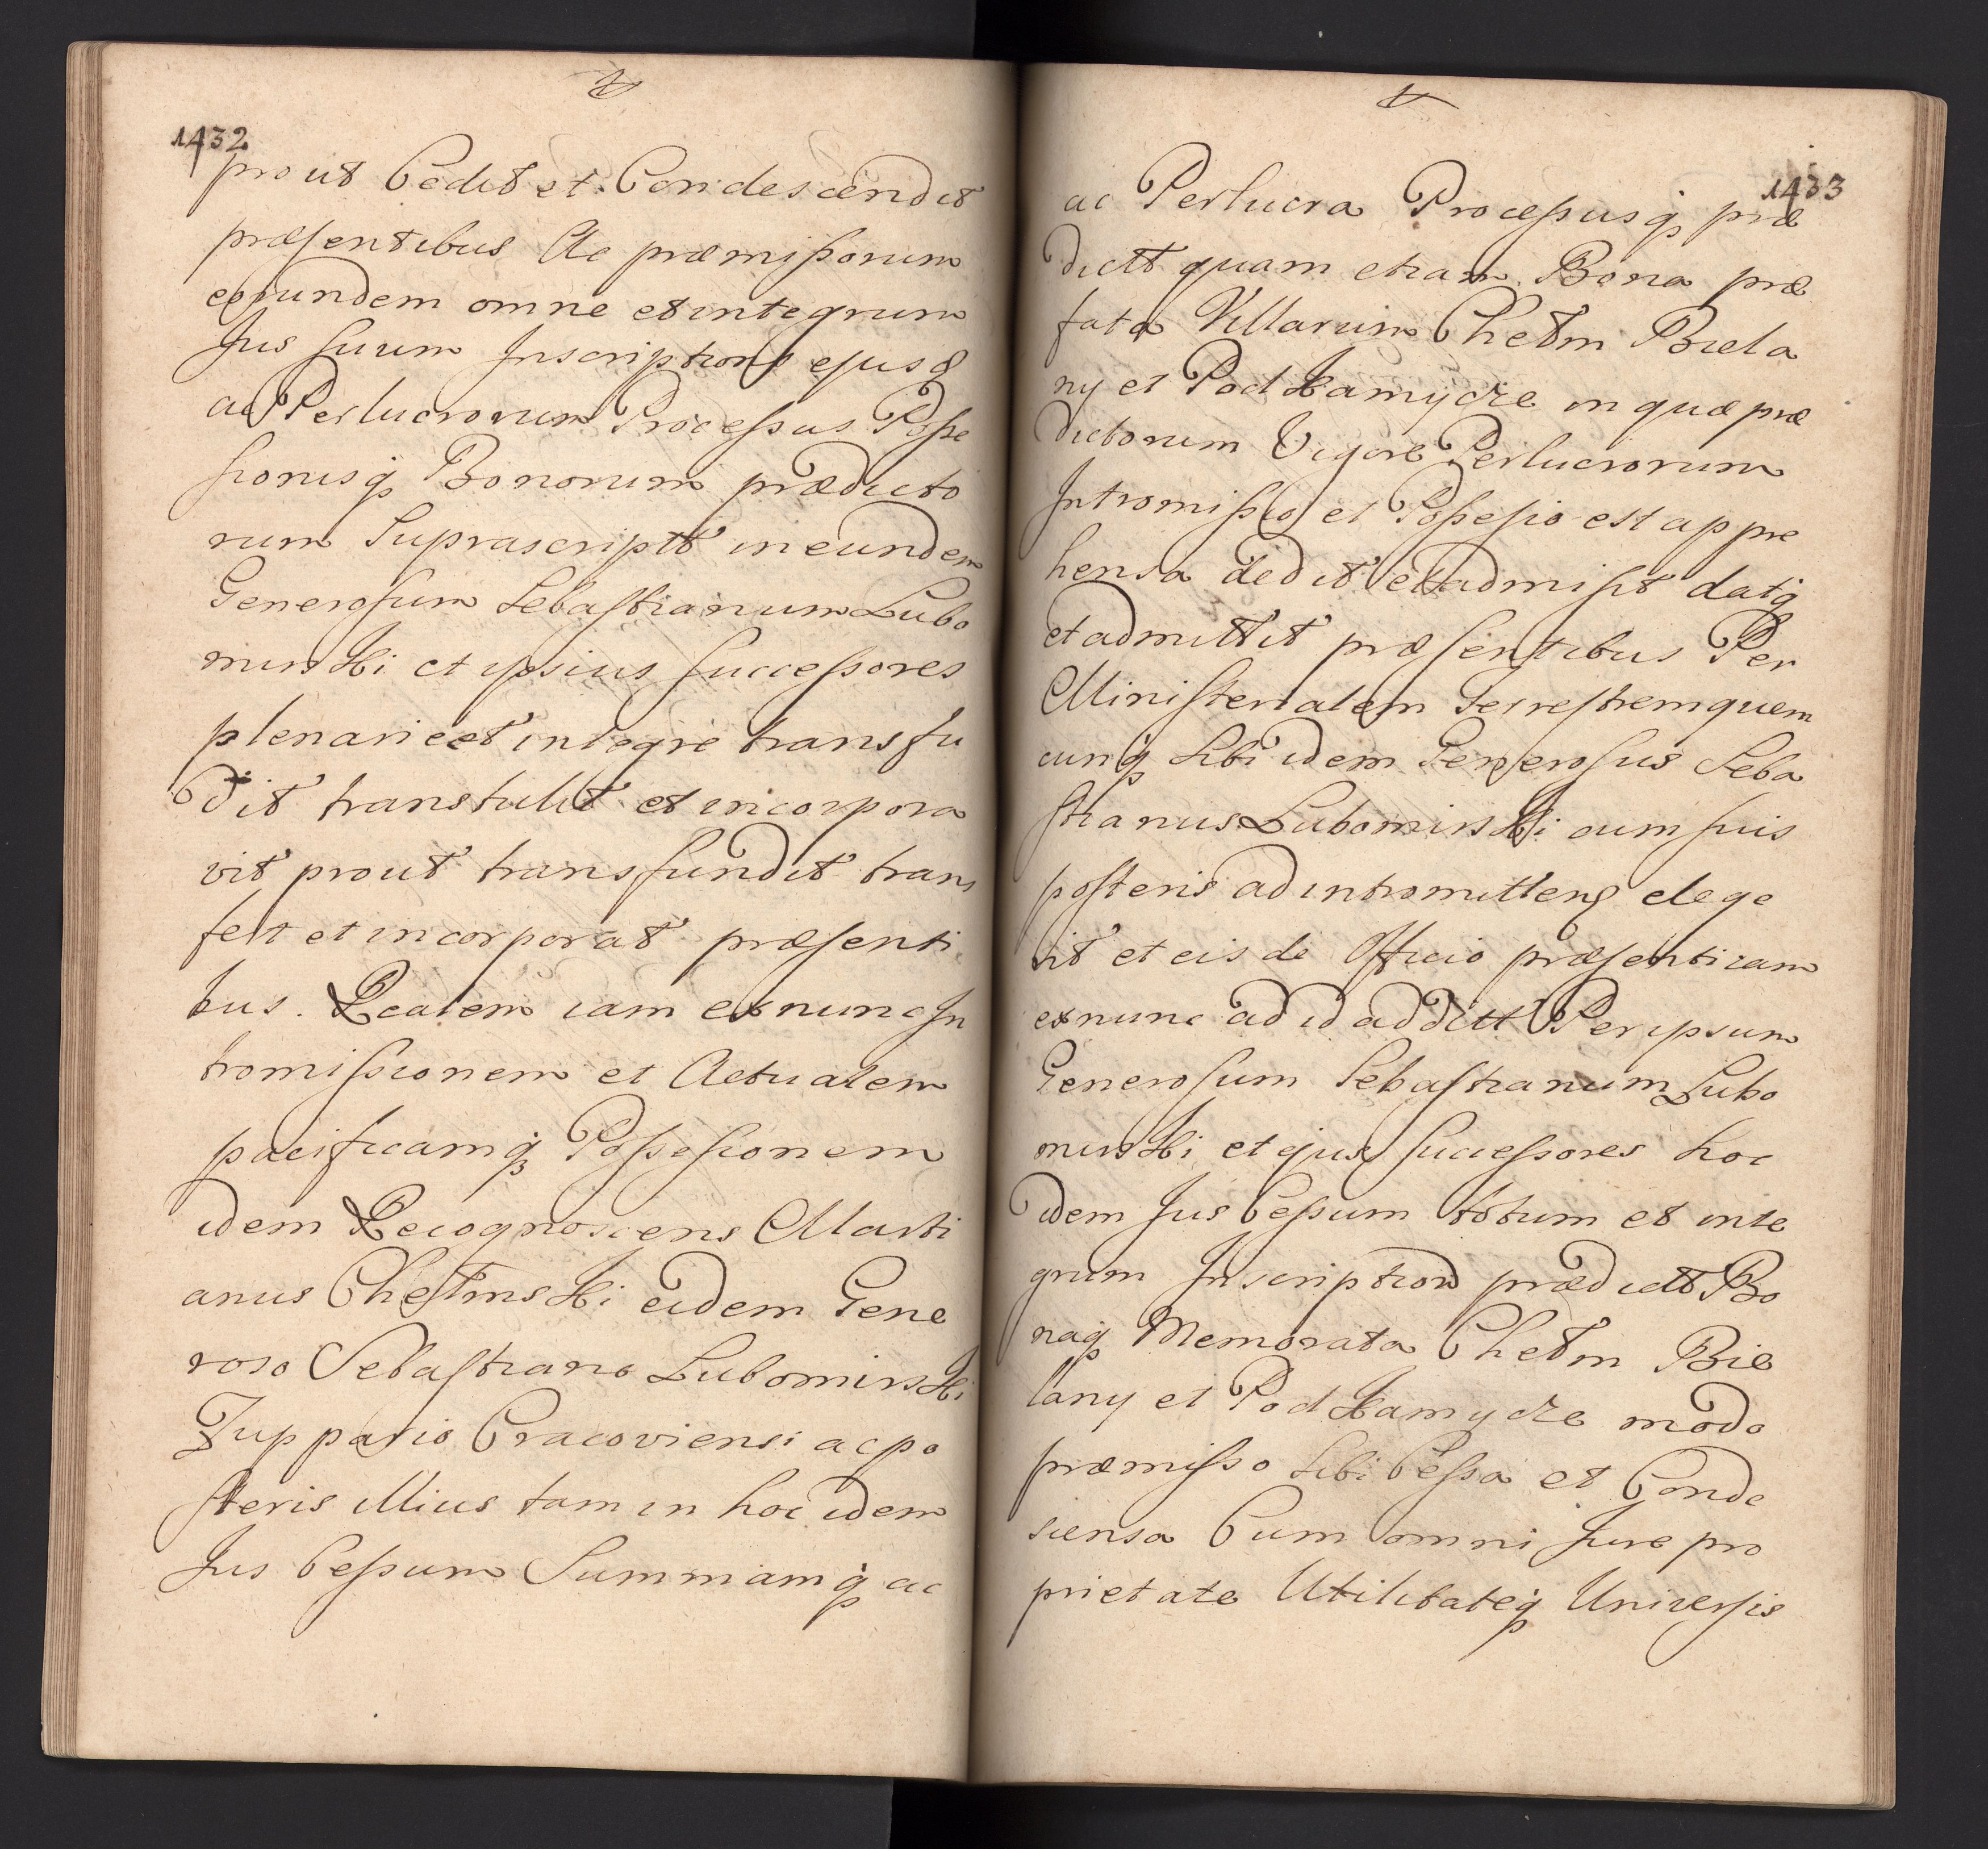 1432
prout Cedit et Condescendit
præsentibus Ac præmissorum
eorundem omne et integrum
Jus suum Inscription ejusd
ac Perlucrorum Processus Posse
sionisq Bonorum prædicto
rum Suprascriptt in eundem
Generosum Sebastianum Lubo
mirski et ipsius successores
plenarie et integre transfu
dit transtulit et incorpora
vit prout transfundit trans
fert et incorporat præsenti
bus. Realem iam exnunc In
tromissionem et Actualem
pacificamq Possessionem
idem Recognoscens Marti
anus Chełmski eidem Gene
roso Sebastiano Lubomirski
Zuppario Cracoviensi ac po
steris illius tam in hoc idem
Jus Cessum Summamq ac
1433
ac Perlucra Processusq præ
dictt quam etiam Bona præ
fata Villarum Chełm Biela
ny et Podkamycze in quæ præ
dictorum Vigore Perlucrorum
Intromissio et Possessio est appre
hensa dedit et admisit datq
et admittit præsentibus Per
Ministerialem Terrestrem quem
cunq sibi idem Generosus Seba
stianus Lubomirski cum suis
posteris ad intromittend elege
rit et eis de Officio præsenti iam
exnunc ad id addictt Per ipsum
Generosum Sebastianum Lubo
mirski et ejus successores hoc
idem Jus Cessum totum et inte
grum Inscription prædictt Bo
naq Memorata Chełm Bie
lany et Podkamycze modo
præmisso sibi Cessa et Conde
scensa Cum omni Jure pro
prietate Utilitateq Universis